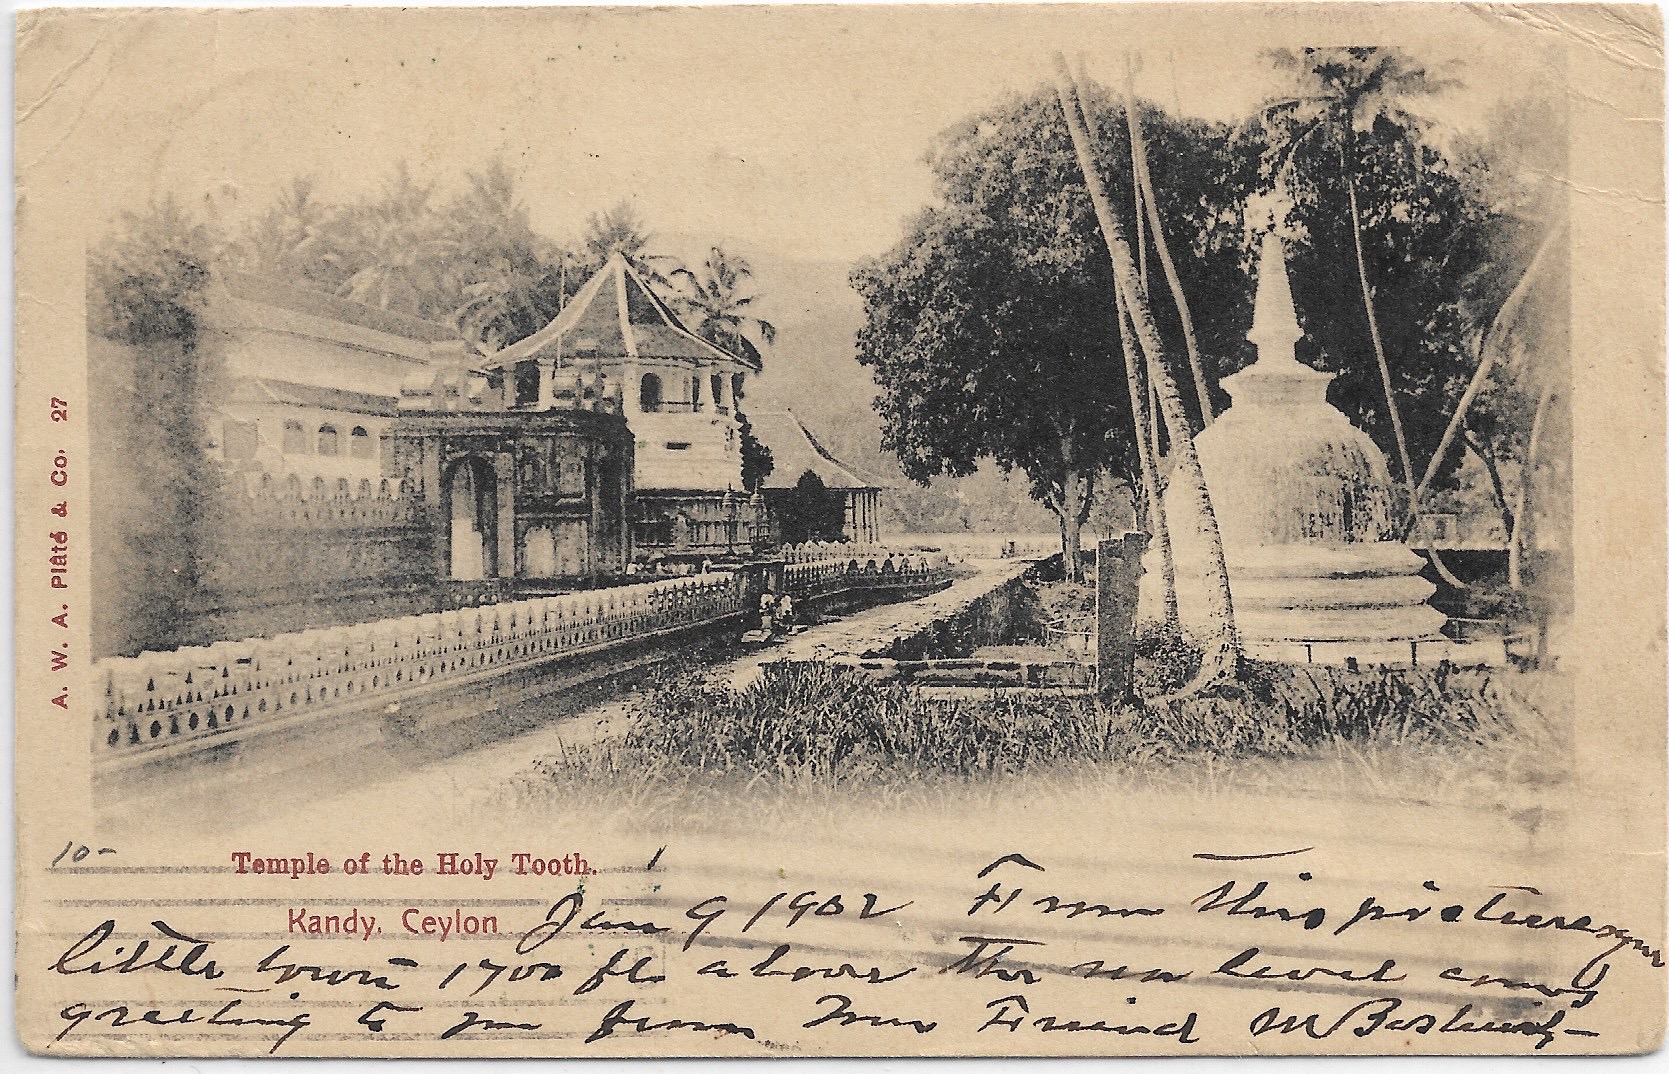 A. W. A. Plâté & Co. 27
10-
Temple of the Holy Tooth.
Kandy, Ceylon
Jan 9 1902 From this picturesque
little town 1700 ft above the sea level comes
greeting to you from Your Friend M